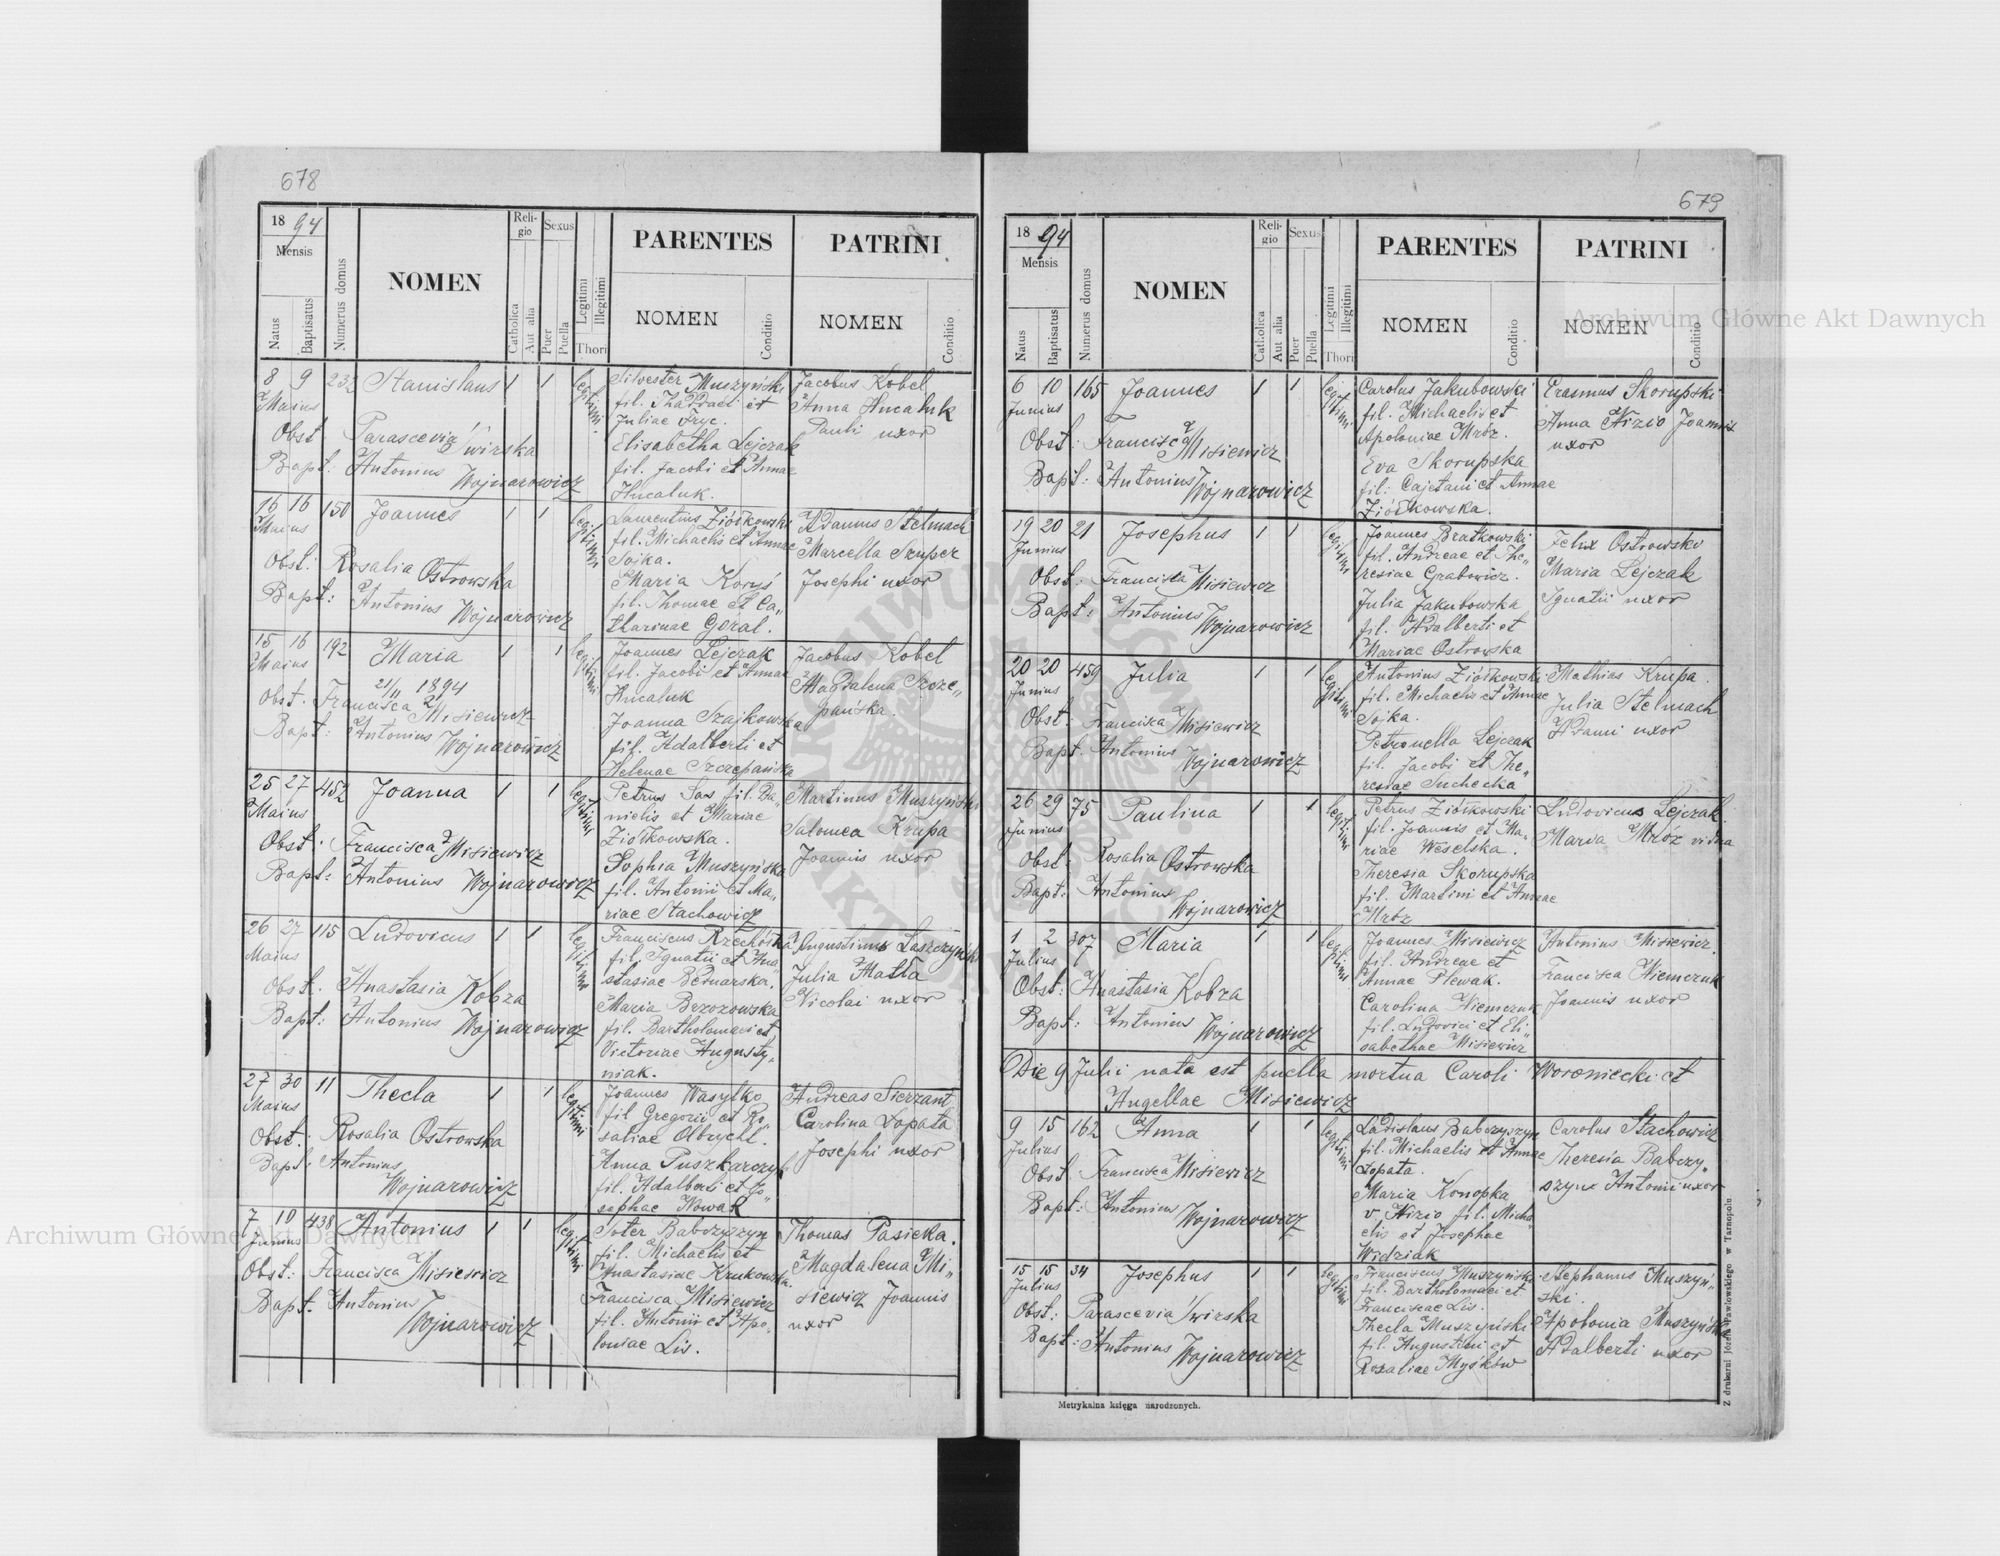 678
1894
Mensis
Natus
Baptisatus
Numerus domus
NOMEN
Reli-
gio
Catholica
Aut alia
Sexus
Puer
Puella
Legitimi
Illegitimi
Thori
PARENTES
NOMEN
Conditio
PATRINI
NOMEN
Conditio
8 9 232 Stanislaus 1 1 legitimi
Maius
Obst. Parascevia
Świrska
Bapt: Antonius
Wojnarowicz
Silvester Muszyński
fil. Thaddaei et
Juliae Fryc.
Elisabetha Lejczak
fil. Jacobi et Annae
Hucaluk.
Jacobus Kobel
Anna Hucaluk
Pauli uxor
16 16 150 Joannes 1 1 legitimi
Maius
Obst: Rosalia Ostrowska
Bapt: Antonius
Wojnarowicz
Laurentius Ziółkowski
fil. Michaelis et Annae
Sojka.
Maria Koryś
fil. Thomae et Ca„
tharinae Goral.
Adamus Stelmach
Marcella Szuper
Josephi uxor
15 16 192 Maria 1 1 legitimi
Maius
21/11 1894
Obst. Francisca Misiewicz
Bapt: Antonius
Wojnarowicz
Joannes Lejczak
fil. Jacobi et Annae
Hucaluk
Joanna Szajkowska
fil. Adalberti et
Helenae Szczepańska
Jacobus Kobel
Magdalena Szcze„
pańska.
25 27 452 Joanna 1 1 legitimi
Maius
Obst. Francisca Misiewicz
Bapt: Antonius Wojnarowicz
Petrus Sas fil. Da„
nielis et Mariae
Ziółkowska.
Sophia Muszyńska
fil. Antonii et Ma„
riae Stachowicz
Martinus Muszyński
Salomea Krupa
Joannis uxor
26 27 115 Ludovicus 1 1 legitimi
Maius
Obst. Anastasia Kobza
Bapt: Antonius Wojnarowicz
Franciscus Rzechółka
fil. Ignatii et Ana„
stasiae Bednarska.
Maria Brzozowska
fil. Bartholomaei et
Victoriae Augusty„
niak.
Augustinus Laszczyński
Julia Matła
Nicolai uxor
27 30 11 Thecla 1 1 legitimi
Maius
Obst: Rosalia Ostrowska
Bapt: Antonius
Wojnarowicz
Joannes Wasylko
fil Gregorii et Ro„
saliae Olbrycht.
Anna Puszkarczyk
fil. Adalberti et Jo„
sephae Nowak
Andreas Sierzant
Carolina Łopata
Josephi uxor
7 10 438 Antonius 1 1 legitimi
Junius
Obst: Francisca Misiewicz
Bapt. Antonius
Wojnarowicz
Soter Babczyszyn
fil. Michaelis et
Anastasiae Krukowska.
Francisca Misiewicz
fil. Antonii et Apo„
loniae Lis.
Thomas Pasieka.
Magdalena Mi„
siewicz Joannis
uxor
679
1894
Mensis
Natus
Baptisatus
Numerus domus
NOMEN
Reli-
gio
Catholica
Aut alia
Sexus
Puer
Puella
Legitimi
Illegitimi
Thori
PARENTES
NOMEN
Conditio
PATRINI
NOMEN
Conditio
6 10 165 Joannes 1 1 legitimi
Junius
Obst: Francisca
Misiewicz
Bapt: Antonius
Wojnarowicz
Carolus Jakubowski
fil. Michaelis et
Apoloniae Mróz.
Eva Skorupska
fil: Cajetani et Annae
Ziółkowska.
Erasmus Skorupski
Anna Nizio Joannis
uxor
19 20 21 Josephus 1 1 legitimi
Junius
Obst: Francisca Misiewicz
Bapt: Antonius
Wojnarowicz
Joannes Bratkowski
fil. Andreae et The„
resiae Grabowicz.
Julia Jakubowska
fil. Adalberti et
Mariae Ostrowska
Felix Ostrowski
Maria Lejczak
Ignatii uxor
20 20 459 Julia 1 1 legitimi
Junius
Obst: Francisca Misiewicz
Bapt. Antonius
Wojnarowicz
Antonius Ziółkowski
fil. Michaelis et Annae
Sojka.
Petronella Lejczak
fil. Jacobi et The„
resiae Suchecka
Mathias Krupa.
Julia Stelmach
Adami uxor
26 29 75 Paulina 1 1 legitimi
Junius
Obst: Rosalia Ostrowska
Bapt: Antonius
Wojnarowicz
Petrus Ziółkowski
fil. Joannis et Ma„
riae Weselska.
Theresia Skorupska
fil. Martini et Annae
Mróz
Ludovicus Lejczak.
Maria Mróz vidua
1 2 307 Maria 1 1 legitimi
Julius
Obst: Anastasia Kobza
Bapt: Antonius
Wojnarowicz
Joannes Misiewicz
fil. Andreae et
Annae Plewak.
Carolina Niemczuk
fil. Ludovici et Eli„
sabethae Misiewicz
Antonius Misiewicz.
Francisca Niemczuk
Joannis uxor
Die 9 Julii nata est puella mortua Caroli Woroniecki et
Angellae Misiewicz
9 15 162 Anna 1 1 legitimi
Julius
Obst. Francisca Misiewicz
Bapt: Antonius
Wojnarowicz
Ladislaus Babczyszyn
fil. Michaelis et Annae
Łopata.
Maria Konopka
v Nizio fil. Micha„
elis et Josephae
Widziak
Carolus Stachowicz
Theresia Babczy„
szyn Antonii uxor
15 15 34 Josephus 1 1 legitimi
Julius
Obst: Parascevia Świrska
Bapt: Antonius
Wojnarowicz
Franciscus Muszyński
fil. Bartholomaei et
Franciscae Lis.
Thecla Muszyński
fil. Augustini et
Rozaliae Myśków
Stephanus Muszyń„
ski.
Apolonia Muszyńska
Adalberti uxor
Metrykalna księga narodzonych.
Z drukarni Józefa Pawłowskiego w Tarnopolu
Archiwum Główne Akt Dawnych
Archiwum Główne Akt Dawnych
ARCHIWUM GŁÓWNE AKT DAWNYCH